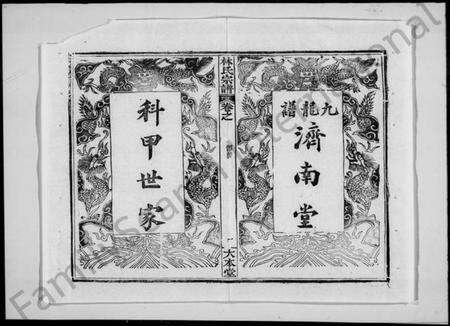 九龍譜
濟南堂
林氏宗譜
卷之
大本堂
科甲世家
FamilySearch International